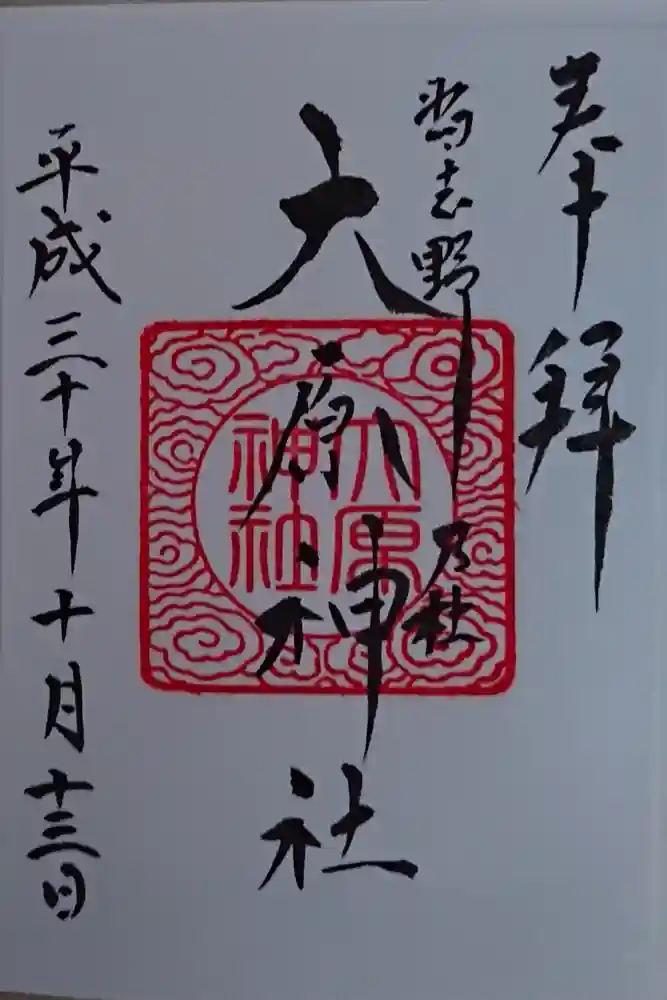 奉拝
習志野乃杜
大原神社
大原神社
平成三十年十月十三日